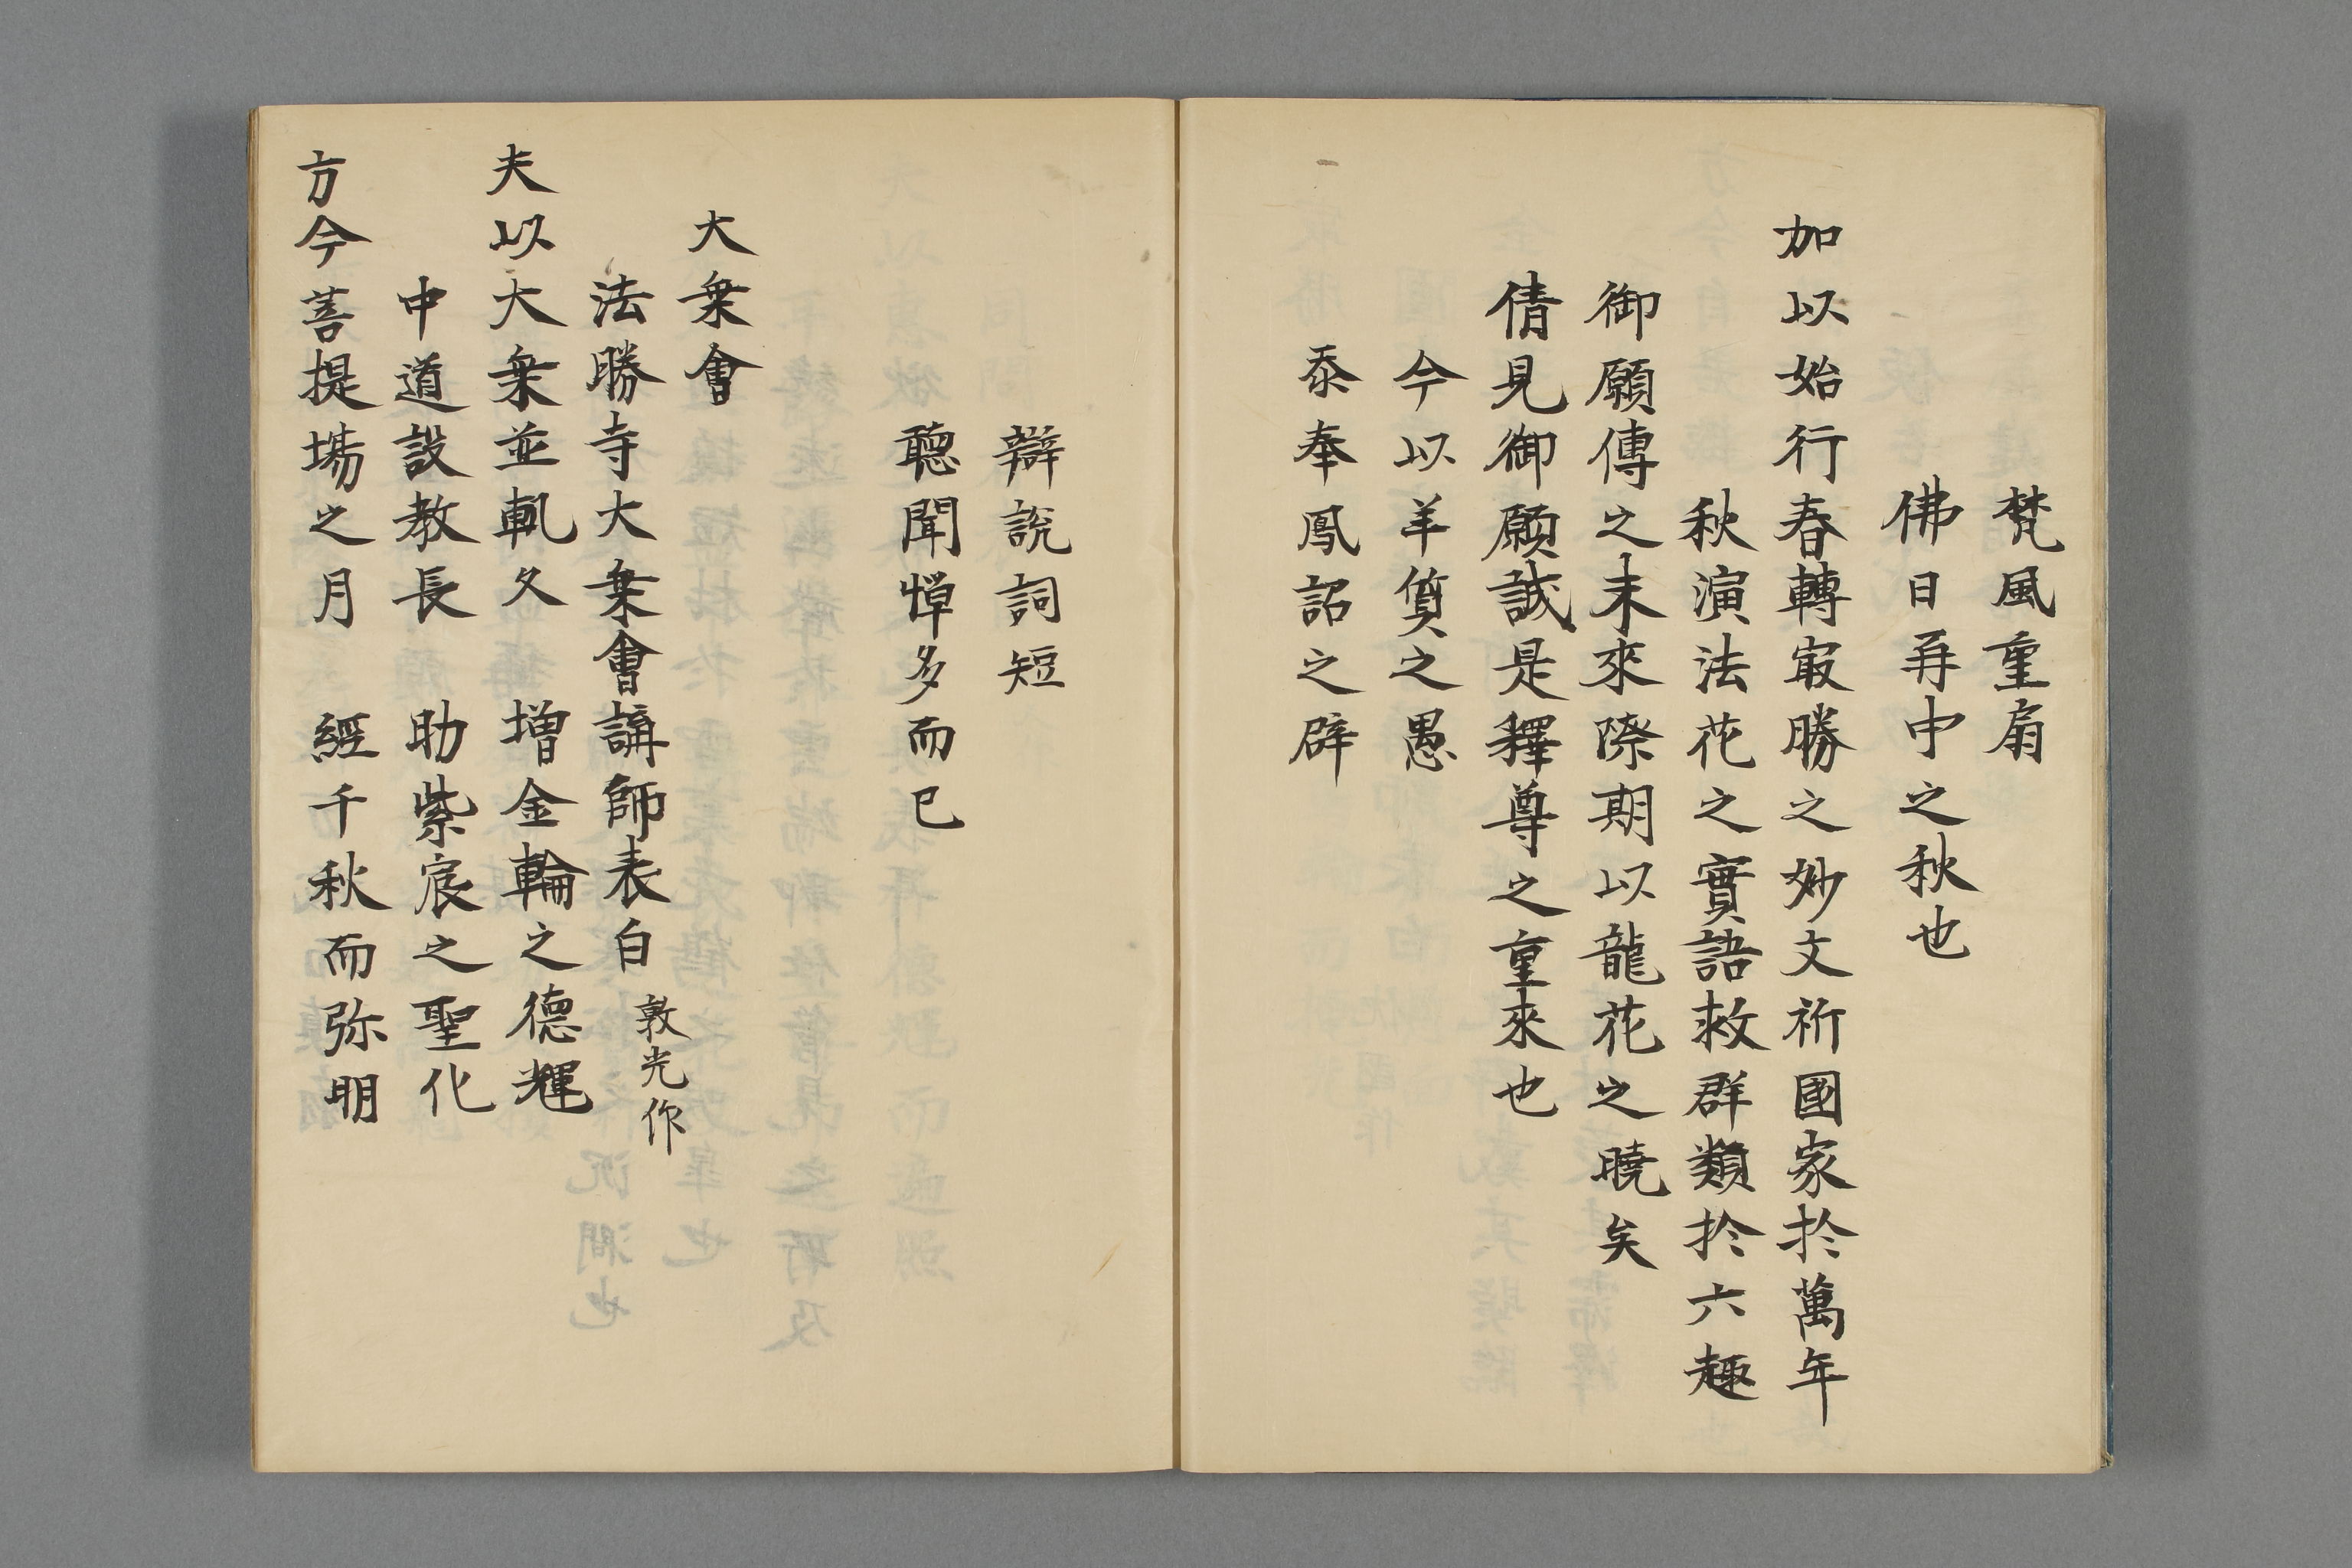 梵風重扇
佛日再中之秋也
加以始行春轉冣勝之妙文祈國家於萬年
秋演法花之實語救群類於六趣
御願傳之末來際期以龍花之曉矣
倩見御願誠是釋尊之重來也
今以羊質之愚
忝奉鳳詔之辟
辯説詞短
聽聞憚多而已
大乗會
法勝寺大乗會講師表白 敦光作
夫以大乗並軌久 増金輪之德輝
中道設教長 助紫宸之聖化
方今菩提場之月 經千秋而弥明